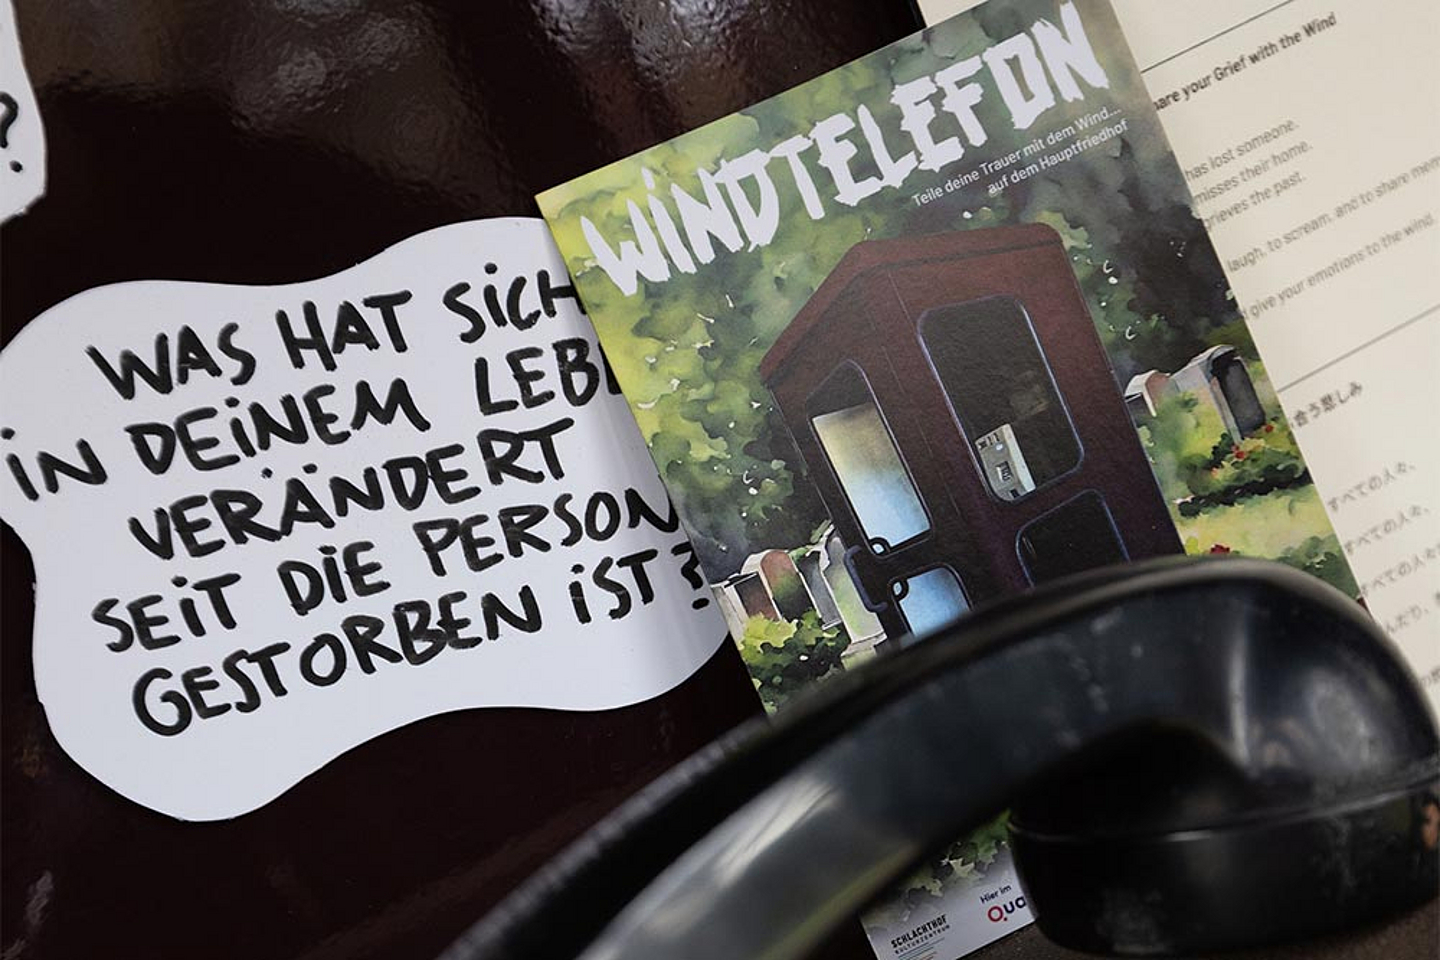 ?
WAS HAT SICH
IN DEINEM LEBE
VERÄNDERT
SEIT DIE PERSON
GESTORBEN IST?
WINDTELEFON
Teile deine Trauer mit dem Wind...
auf dem Hauptfriedhof
SCHLACHTHOF
KULTURZENTRUM
Hier im
Qua
hare your Grief with the Wind
has lost someone.
misses their home.
grieves the past.
laugh, to scream, and to share mem
give your emotions to the wind.
合う悲しみ
すべての人々、
すべての人々、
すべての人々